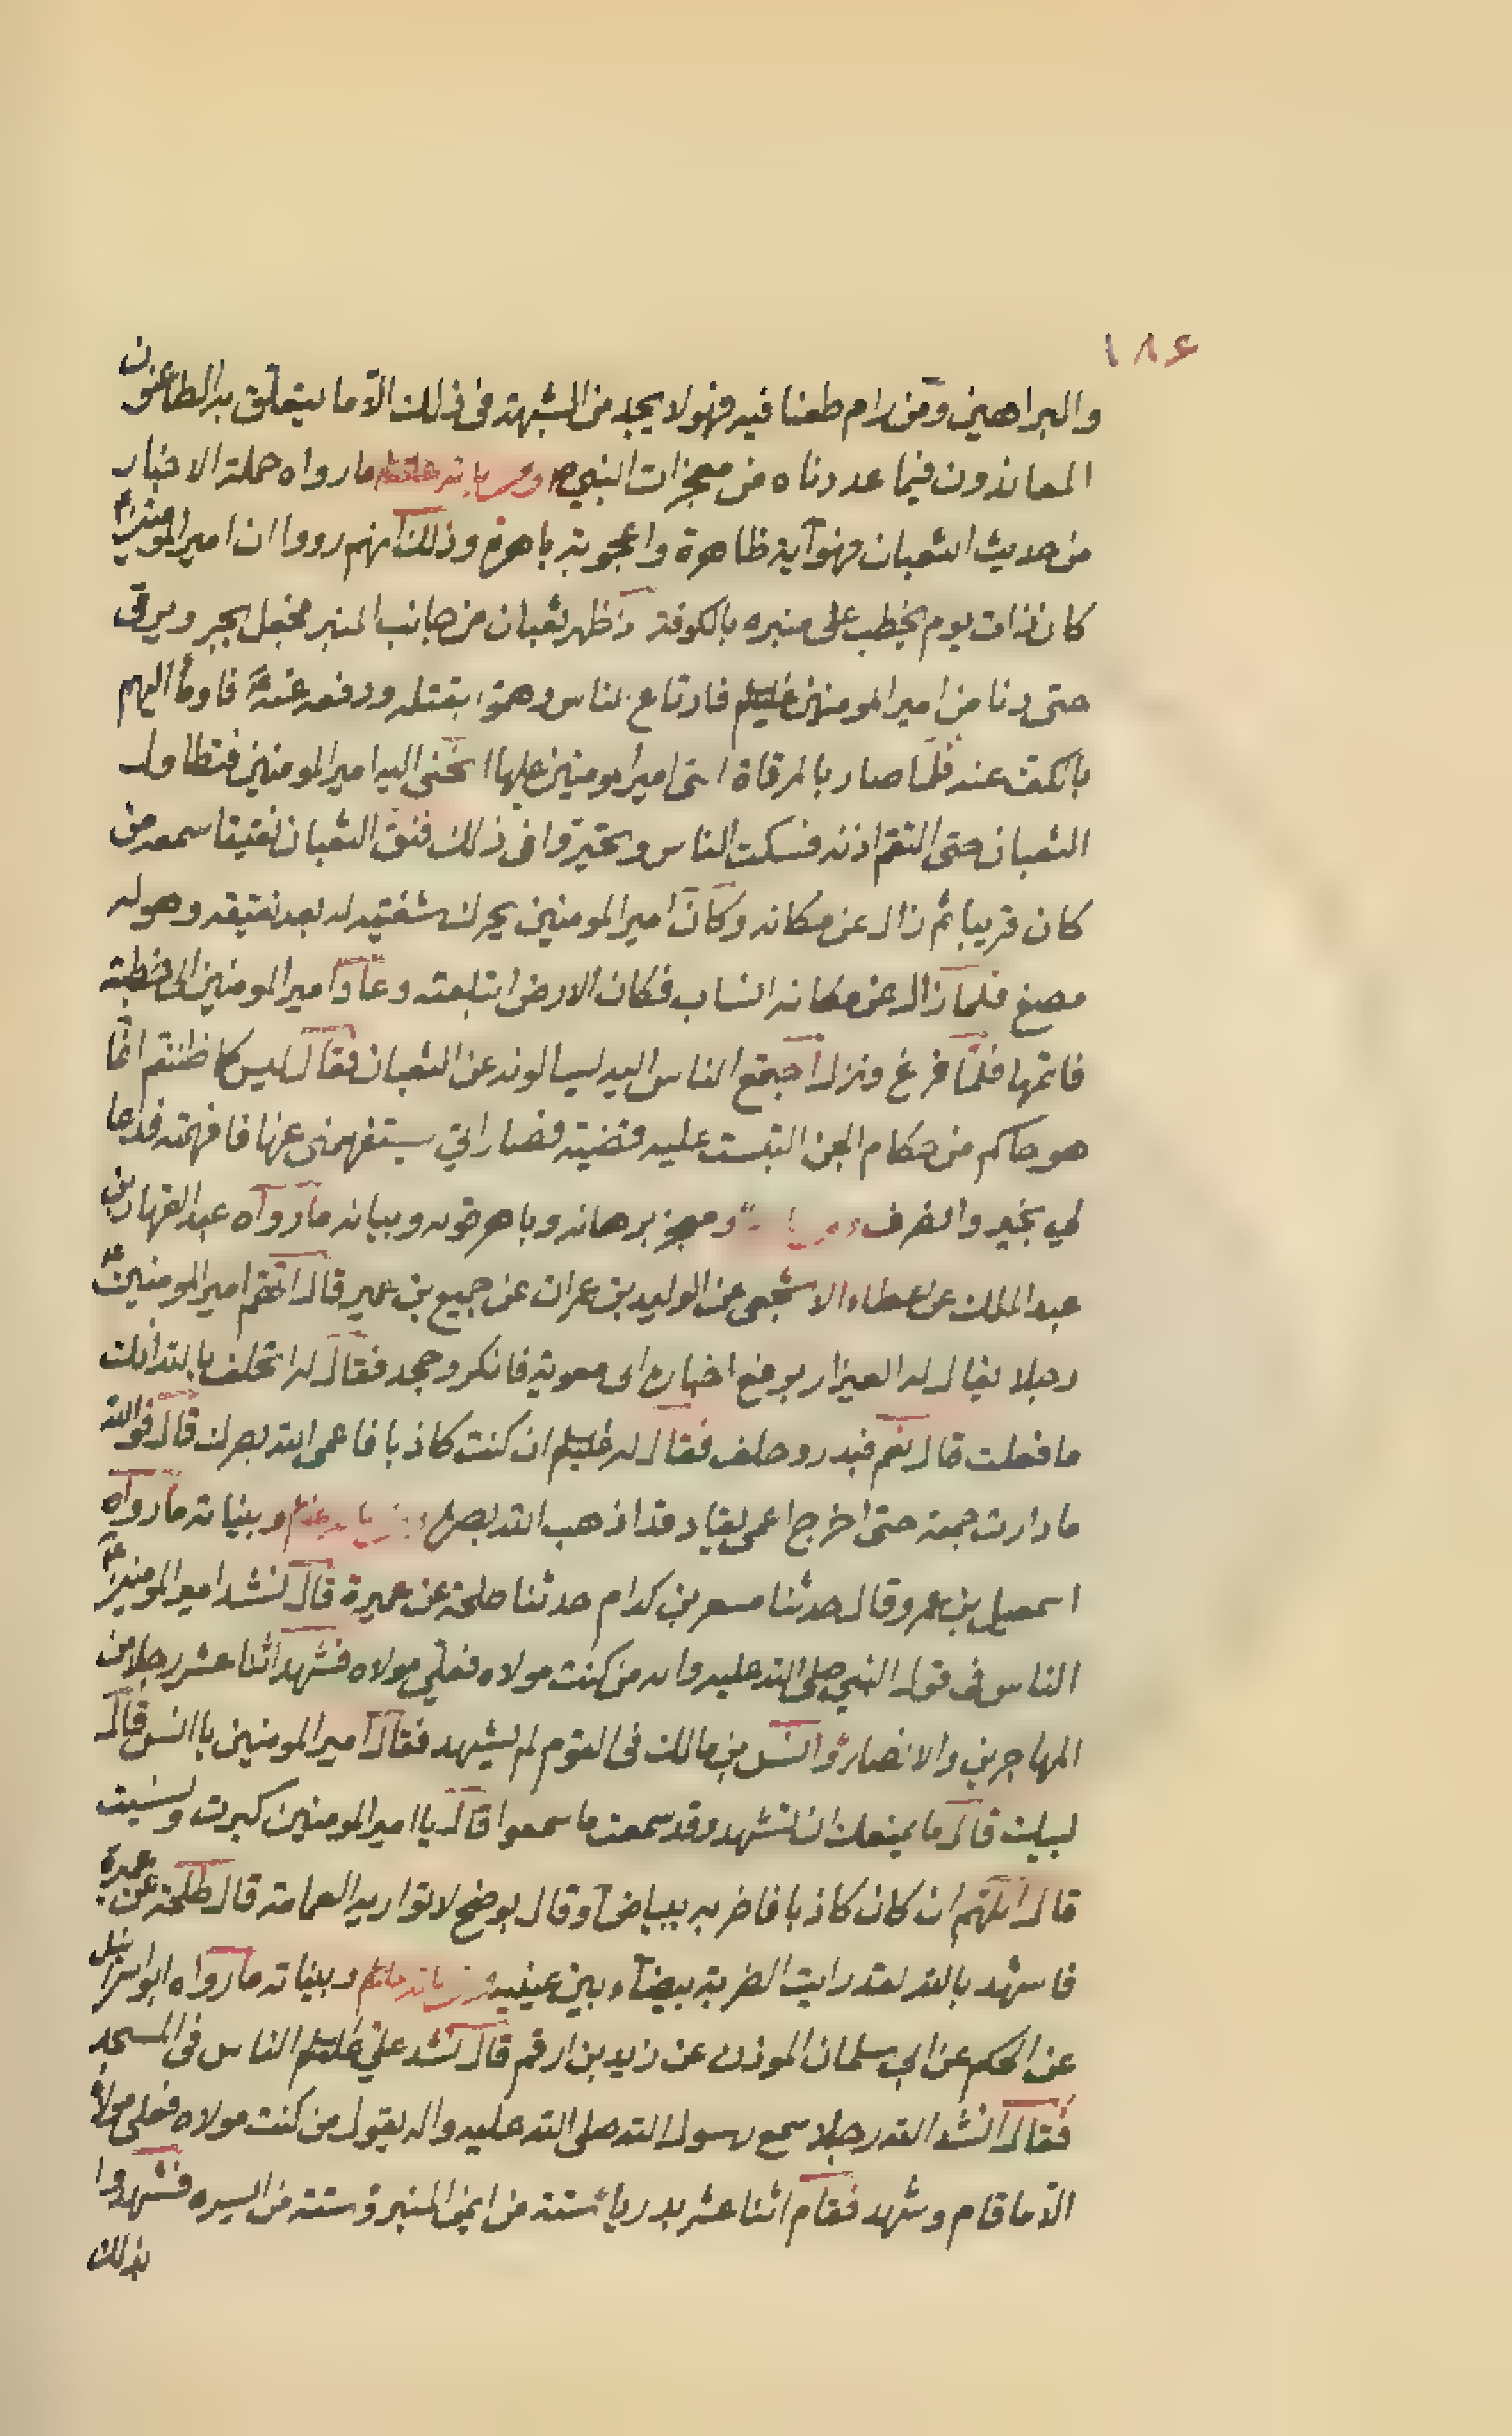 ١٨۶
والبراهين ومن رام طعنا فيه فهو لا يجد من الشبهة فى ذلك الّا ما يتعلّق به الطاعنون
المعاندون فيما عددناه من معجزات النبي ص ومن ما رواه حملة الاخبار
من حديث الثعبان فهو آية ظاهرة واعجوبة باهرة وذلك انهم رووا ان امير المومنين ع
كان ذات يوم يخطب على منبره بالكوفة اذ ظهر ثعبان من جانب المنبر فجعل يجبر ويرقى
حتى دنا من امير المومنين عليه السلم فارتاع الناس وهموا بقتله ودفعه عنه فاومأ اليهم
بالكف عنه فلمّا صار بالمرقاة التى امير المومنين عليها انحنى اليه امير المومنين فتطاول
الثعبان حتى التقم اذنه فسكت الناس وتحيّروا فى ذلك فنقّ الثعبان نقيقا سمعه من
كان قريبا ثم زال عن مكانه وكان امير المومنين يحرك شفتيه له بعد نقيقه وهو له
مصغ فلما زال عن مكانه انساب فكان الارض ابتلعته وعاد امير المومنين الى خطبته
فاتمها فلمّا فرغ ونزل اجتمع الناس اليه ليسالونه عن الثعبان فقال ليس كما ظننتم انما
هو حاكم من حكام الجن التبست عليه قضية فصار اليّ يستفهمني عنها فافهمته فدعا
لي بخير وانصرف ومعجز برهانه وباهر وبيانه ما رواه عبد القهار بن
عبد الملك عن عطاء الاشجعى عن الوليد بن عمران عن جميع بن عمير قال اتّهم امير المومنين ع
رجلا يقال له العيزار برفع اخباره الى معوية فانكر وجحد فقال له اتحلف بالله انك
ما فعلت قال نعم فبدر وحلف فقال له عليه السلم ان كنت كاذبا فاعمى الله بصرك قال فوالله
ما دارت جمعة حتى اخرج اعمى يقاد قد اذهب الله بصره وبيناته ما رواه
اسمعيل بن عمرو قال حدثنا مسعر بن كدام حدثنا طلحة عن عميرة قال نشد امير المومنين ع
الناس فى قول النبي صلى الله عليه واله من كنت مولاه فعليّ مولاه فشهد اثنا عشر رجلا من
المهاجرين والانصار وانس بن مالك فى القوم لم يشهد فقال امير المومنين يا انس قال
لبيك قال ما يمنعك ان تشهد وقد سمعت ما سمعوا قال يا امير المومنين كبرت ونسيت
قال اللّهم ان كان كاذبا فاضربه ببياض او قال بوضح لا تواريه العمامة قال طلحة عن عميرة
فاشهد بالله لقد رايت الضربة بيضآء بين عينيه وبيناته ما رواه ابو اسرائيل
عن الحكم عن ابي سلمان الموذن عن زيد بن ارقم قال نشد عليّ عليه السلم الناس فى المسجد
فقال انشد الله رجلا سمع رسول الله صلى الله عليه واله يقول من كنت مولاه فعلى مولاه
الّا ما قام وشهد فقام اثنا عشر بدريا ستة من ايمن المنبر وستة من ايسره فشهدوا
بذلك